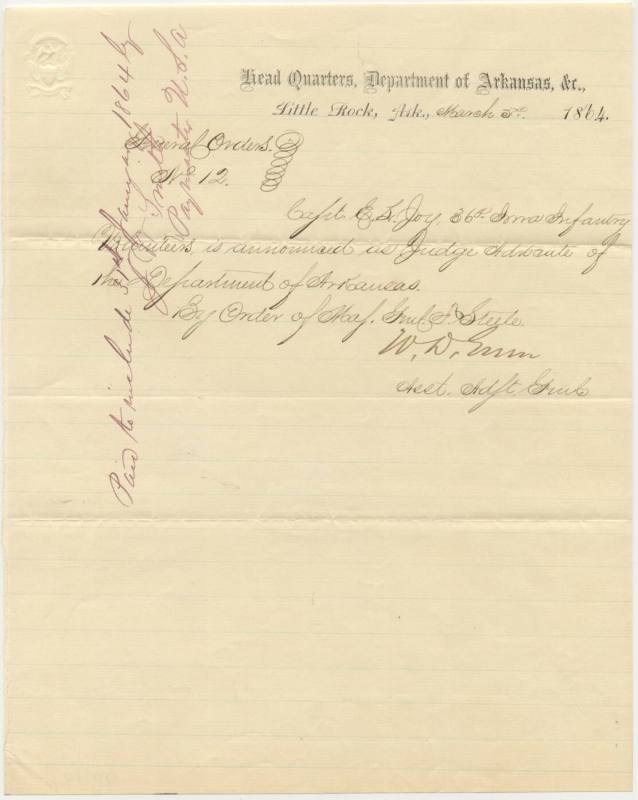 Head Quarters, Department of Arkansas, &c.,
Little Rock, Ark., March 3d 1864.
General Orders.
No 12.
Capt. E. L. Joy, 36th Iowa Infantry
Volunteers, is announced as Judge Advocate of
the Department of Arkansas.
By Order of Maj. Genl. F. Steele.
W. D. Green
Asst. Adjt. Genl.
Paid to include 31st January 1864 by
Smith
Paymaster U.S.A